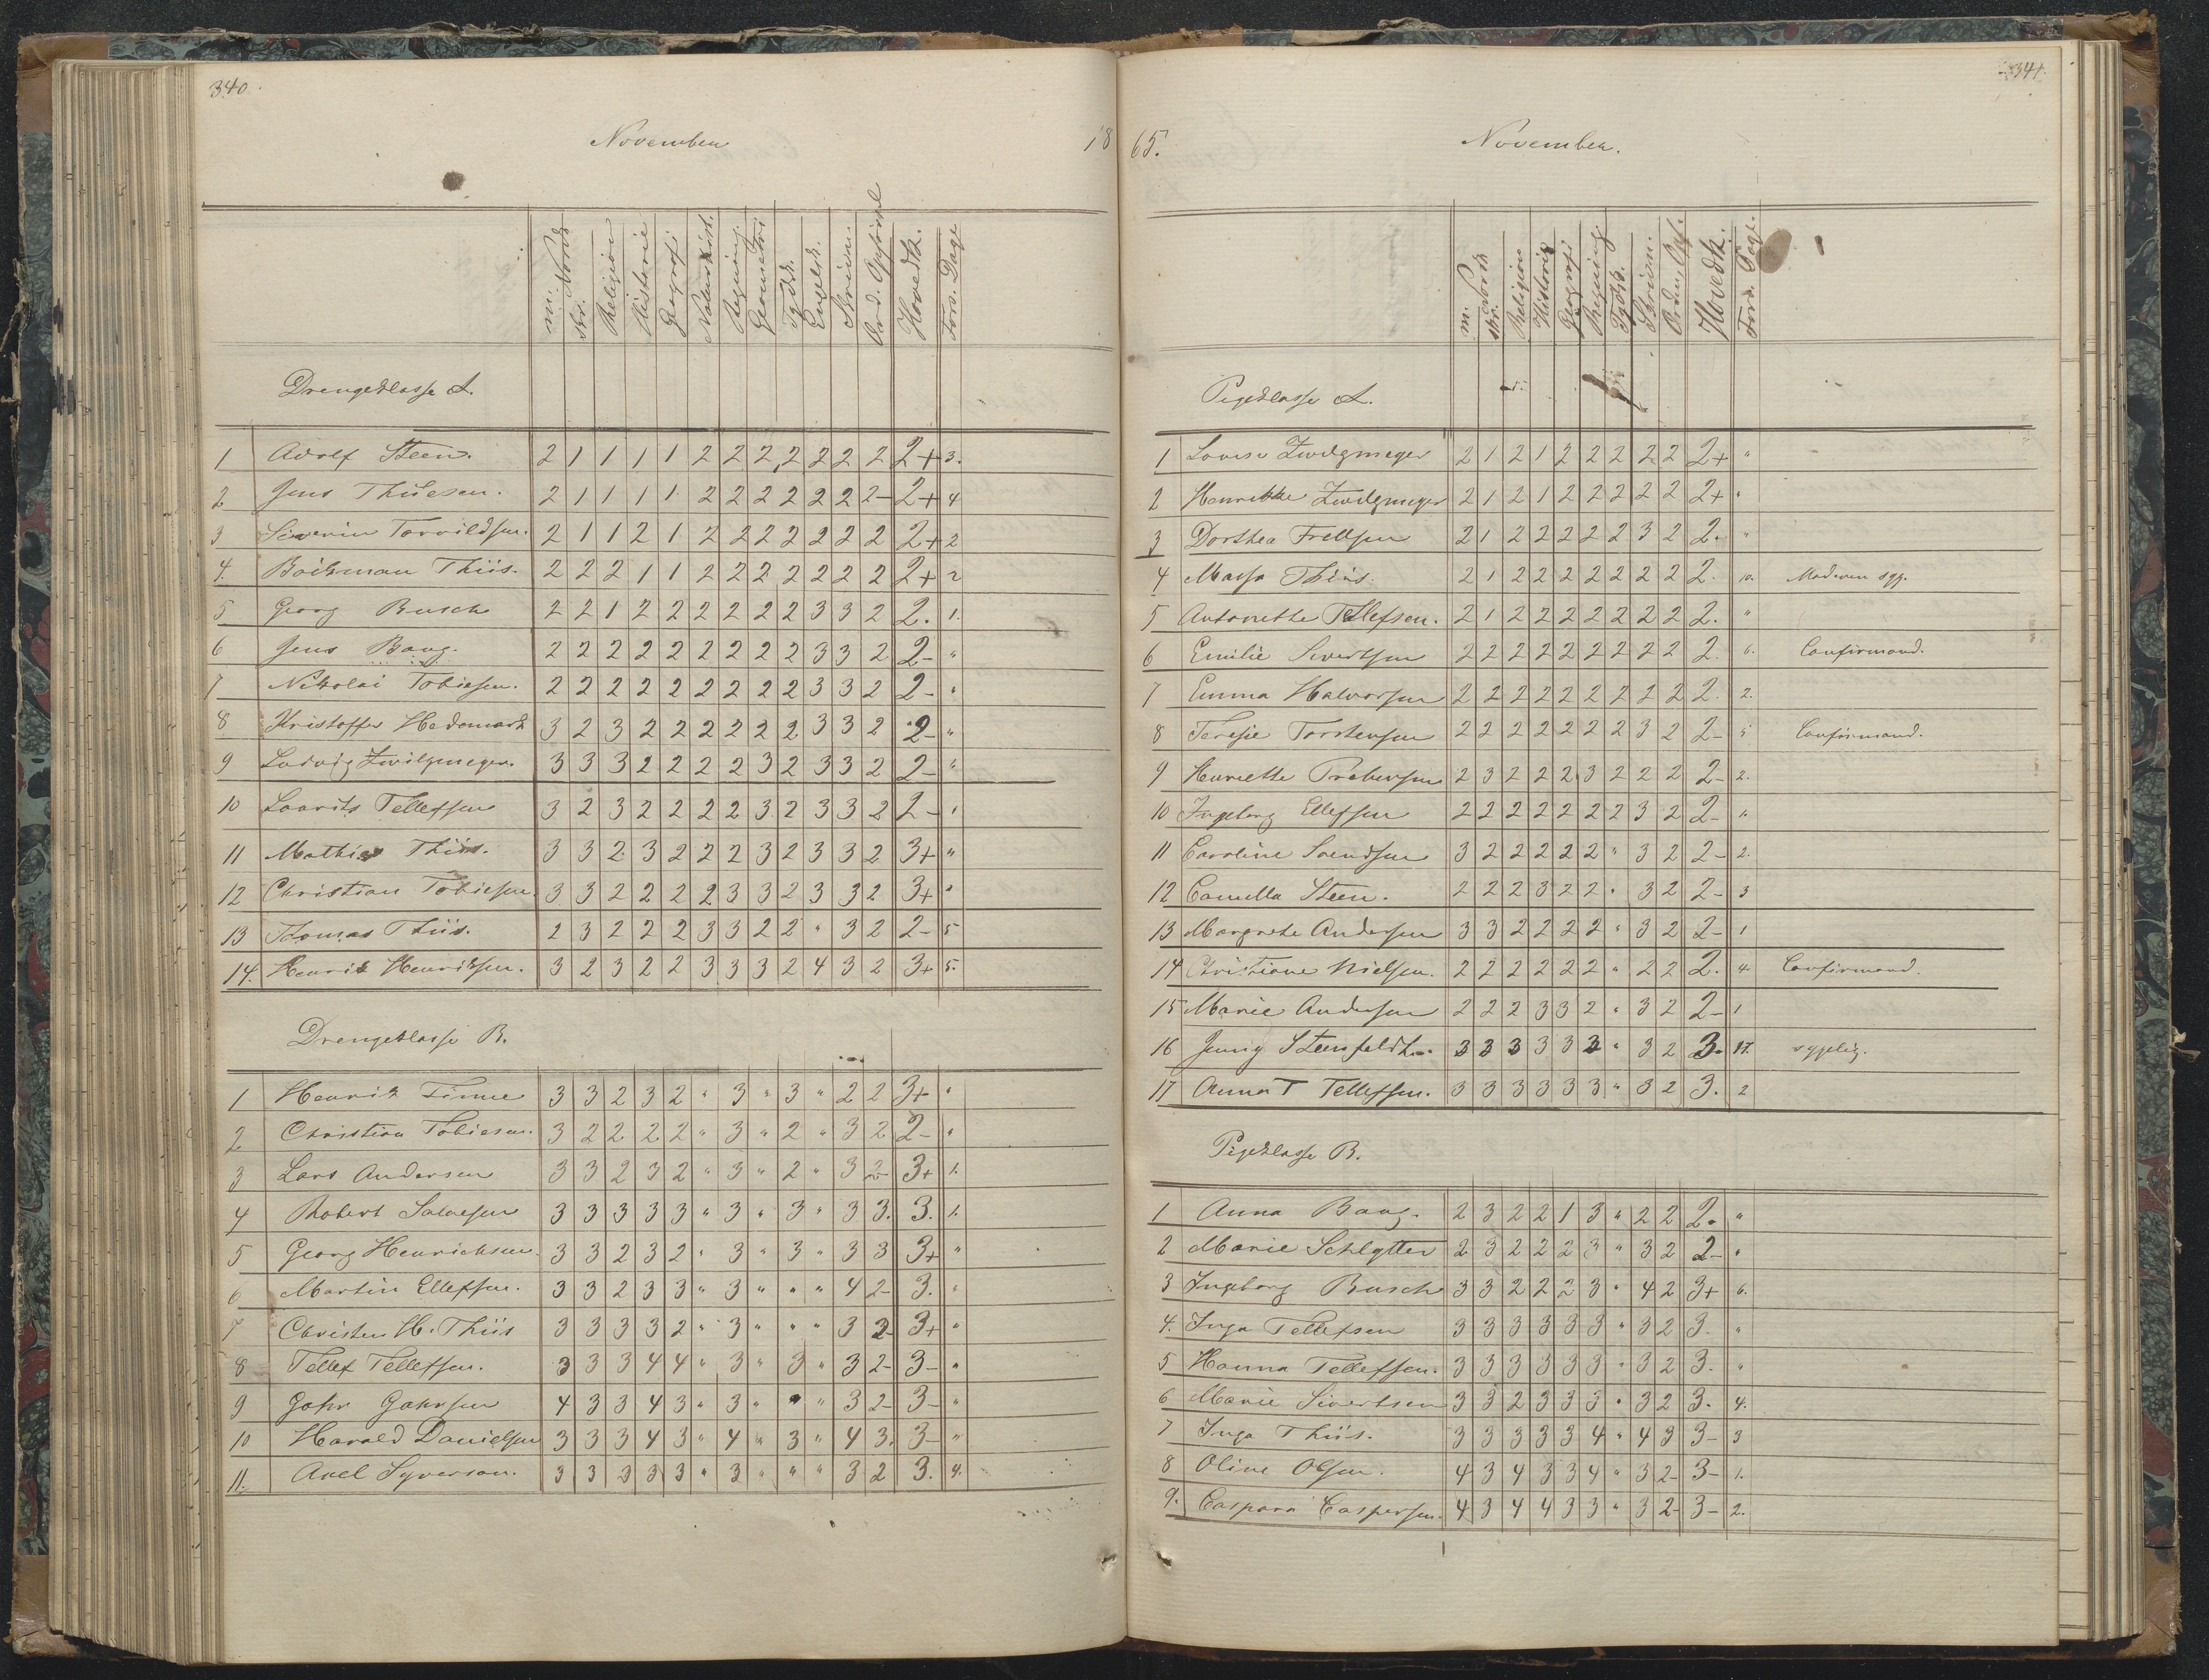 340.
November
18
m. Norsk
skr.
Religion
Historie
Geografi
Naturhist.
Regning.
Geometri
Tydsk.
Engelsk.
Skrivn.
Ord. Opførsel
Hovedk.
Fors. Dage
Drengeklasse A.
1 Adolf Steen. 2 1 1 1 1 2 2 2 2 2 2 2 2+ 3.
2 Jens Thuesen. 2 1 1 1 1 2 2 2 2 2 2 2- 2+ 4
3 Severin Torvildsen. 2 1 1 2 1 2 2 2 2 2 2 2 2+ 2
4. Boickman Thiis. 2 2 2 1 1 2 2 2 2 2 2 2 2+ 2
5 Georg Busch 2 2 1 2 2 2 2 2 2 3 3 2 2. 1.
6 Jens Bang. 2 2 2 2 2 2 2 2 2 3 3 2 2- "
7 Nikolai Tobiesen. 2 2 2 2 2 2 2 2 2 3 3 2 2- "
8 Kristoffer Hedemark 3 2 3 2 2 2 2 2 2 3 3 2 2- "
9 Ludvig Zwilgmeyer. 3 3 3 2 2 2 2 3 2 3 3 2 2- "
10 Laurits Tellefsen 3 2 3 2 2 2 2 3 2 3 3 2 2- "
11 Mathias Thiis. 3 3 2 3 2 2 2 3 2 3 3 2 3+ "
12 Christian Tobiesen. 3 3 2 2 2 2 3 3 2 3 3 2 3+ "
13 Thomas Thiis. 2 3 2 2 2 3 3 2 2 " 3 2 2- 5
14. Henrik Henriksen. 3 2 3 2 2 3 3 3 2 4 3 2 3+ 5.
Drengeklasse B.
1 Henrik Finne 3 3 2 3 2 " 3 " 3 " 2 2 3+ "
2 Christian Tobiesen. 3 2 2 2 2 " 3 " 2 " 3 2 2- "
3 Lars Andersen 3 3 2 3 2 " 3 " 2 " 3 2- 3+ 1.
4 Robert Salvesen 3 3 3 3 3 " 3 " 3 " 3 3. 3. 1.
5 Georg Henrichsen. 3 3 2 3 2 " 3 " 3 " 3 3 3+ "
6 Martin Ellefsen. 3 3 2 3 3 " 3 " " " 4 2- 3. "
7 Christen H. Thiis 3 3 3 3 2 " 3 " " " 3 2- 3+ "
8 Tellef Tellefsen. 3 3 3 4 4 " 3 " 3 " 3 2- 3- "
9 Gahr Gahrsen 4 3 3 4 3 " 3 " " " 3 2- 3- "
10 Harald Danielsen 3 3 3 4 3 " 4 " 3 " 4 3. 3- "
11. Axel Syverson. 3 3 3 3 3 " 3 " " " 3 2 3. 4.
341.
65.
November.
m. Norsk
skr.
Religion
Historie
Geografi
Regning
Tydsk.
Skrivn.
Orden Opf.
Hovedk.
Fors. Dage.
Pigeklasse A.
1 Lovise Zwilgmeyer 2 1 2 1 2 2 2 2 2 2+ "
2 Henrikke Zwilgmeyer 2 1 2 1 2 2 2 2 2 2+ "
3 Dorthea Frellsen 2 1 2 2 2 2 2 3 2 2. "
4 Massa Thiis. 2 1 2 2 2 2 2 2 2 2. 10. Moderen syg.
5 Antonette Tellefsen. 2 1 2 2 2 2 2 2 2 2. "
6 Emilie Sivertsen 2 2 2 2 2 2 2 2 2 2. 6. Confirmand.
7 Emma Halvorsen 2 2 2 2 2 2 2 2 2 2. 2.
8 Teresie Torstensen 2 2 2 2 2 2 2 3 2 2- 5 Confirmand.
9 Henriette Prebensen 2 3 2 2 2 3 2 2 2 2- 2.
10 Ingeborg Ellefsen 2 2 2 2 2 2 2 3 2 2- 1.
11 Caroline Svendsen 3 2 2 2 2 2 " 3 2 2- 2.
12 Camilla Steen. 2 2 2 3 2 2 " 3 2 2- 3
13 Margrete Andersen 3 3 2 2 2 2 " 3 2 2- 1
14 Christiane Nielsen. 2 2 2 2 2 2 " 2 2 2. 4. Confirmand.
15 Marie Andersen 2 2 2 3 3 2 " 3 2 2- 1
16 Jenny Steenfeldt. 3 3 3 3 3 3 " 3 2 3. 17. sygelig.
17 Anna T Tellefsen. 3 3 3 3 3 3 " 3 2 3. 2
Pigeklasse B.
1 Anna Bang. 2 3 2 2 1 3 " 2 2 2. "
2 Marie Schlytter 2 3 2 2 2 3 " 3 2 2- "
3 Ingeborg Busch 3 3 2 2 2 3 " 4 2 3+ 6.
4. Inga Tellefsen 3 3 3 3 3 3 " 3 2 3. "
5 Hanna Tellefsen. 3 3 3 3 3 3 " 3 2 3. "
6 Marie Sivertsen 3 3 2 3 3 3 " 3 2 3. 4.
7 Inga Thiis. 3 3 3 3 3 4 " 4 3 3- 3
8 Oline Olsen. 4 3 4 3 3 4 " 3 2- 3- 1.
9. Caspara Caspersen. 4 3 4 4 3 3 " 3 2- 3- 2.